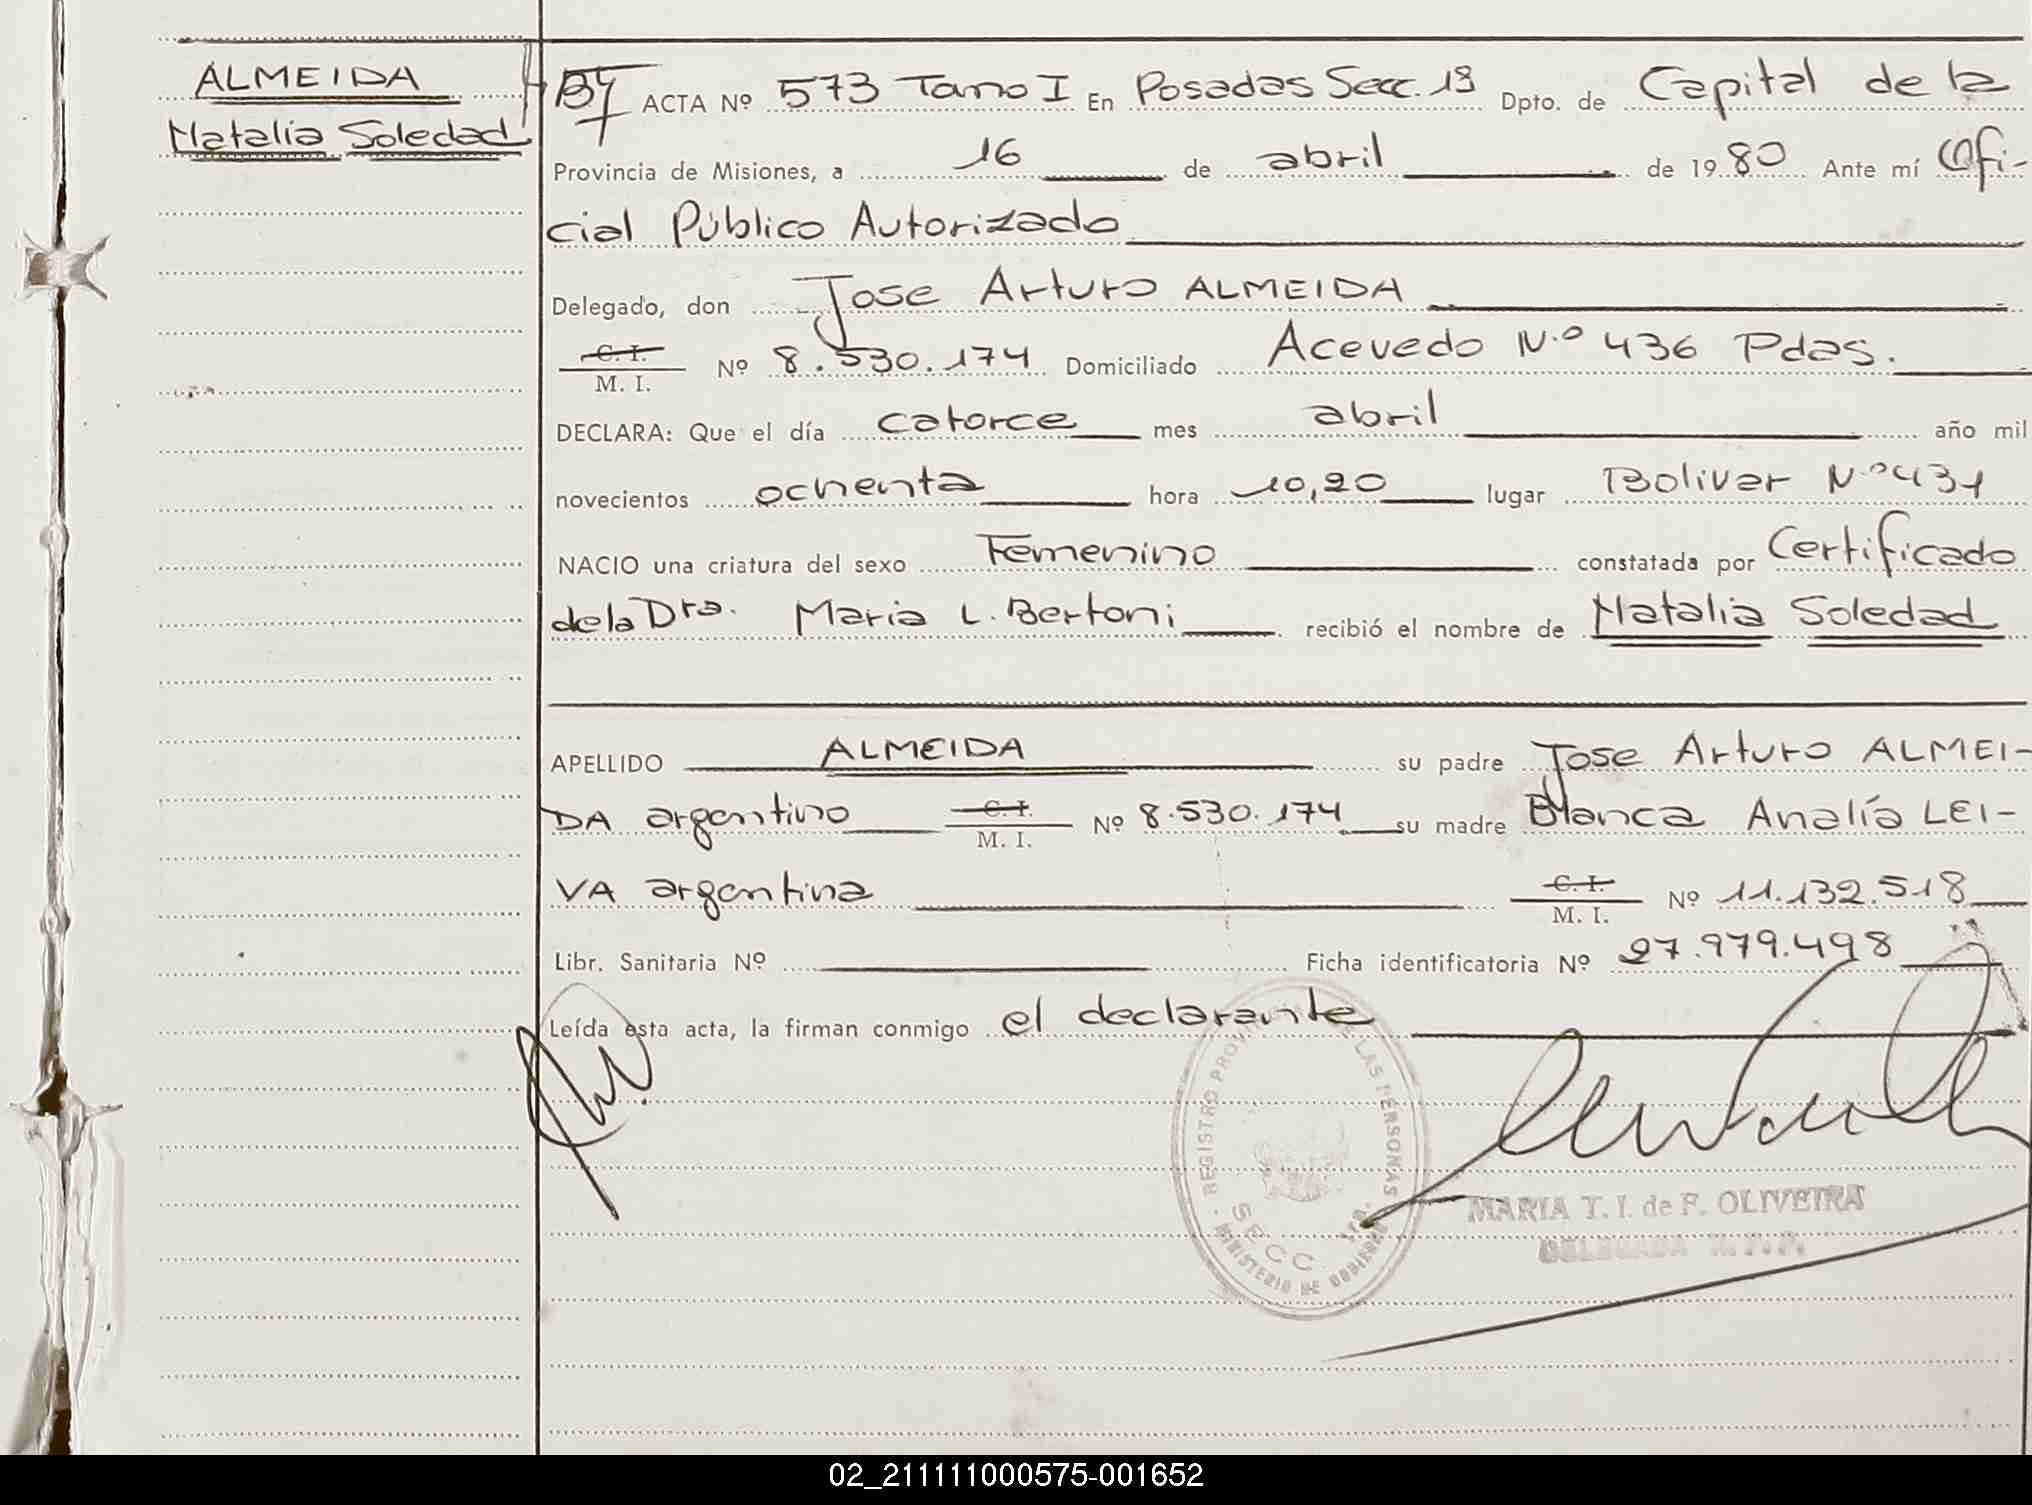 ALMEIDA
Natalia Soledad
ACTA Nº 573 Tomo I En Posadas Secc. 1ª Dpto. de Capital de la
Provincia de Misiones, a 16 de abril de 1980 Ante mí Ofi-
cial Público Autorizado
Delegado, don Jose Arturo ALMEIDA
C. I.
M. I. Nº 8.530.174 Domiciliado Acevedo N.º 436 Pdas.
DECLARA: Que el día catorce mes abril año mil
novecientos ochenta hora 10,20 lugar Bolivar N.º 431
NACIO una criatura del sexo Femenino constatada por Certificado
de la Dra. Maria L. Bertoni recibió el nombre de Natalia Soledad
APELLIDO ALMEIDA su padre Jose Arturo ALMEI-
DA argentino C. I. M. I. Nº 8.530.174 su madre Blanca Analía LEI-
VA argentina C. I. M. I. Nº 11.132.518
Libr. Sanitaria Nº Ficha identificatoria Nº 27.979.498
Leída esta acta, la firman conmigo el declarante
REGISTRO PROVINCIAL DE LAS PERSONAS
SECC 1ra.
MINISTERIO DE GOBIERNO
MARIA T. I. de F. OLIVEIRA
DELEGADA R. P. P.
02_211111000575-001652